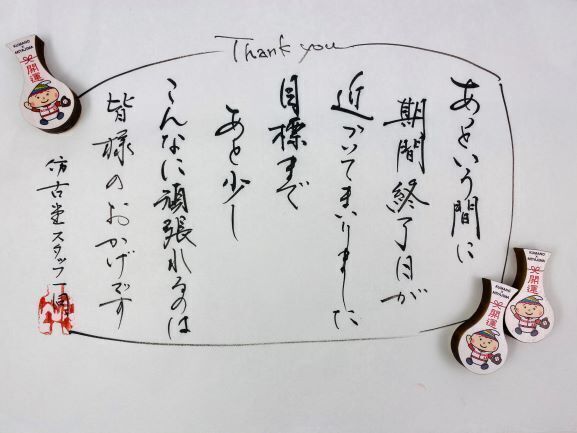 Thank you
あっという間に
期間終了日が
近づいてまいりました
目標まで
あと少し
こんなに頑張れるのは
皆様のおかげです
仿古堂スタッフ一同
KUMANO & MIYAJIMA
開運
KUMANO & MIYAJIMA
開運
KUMANO & MIYAJIMA
開運